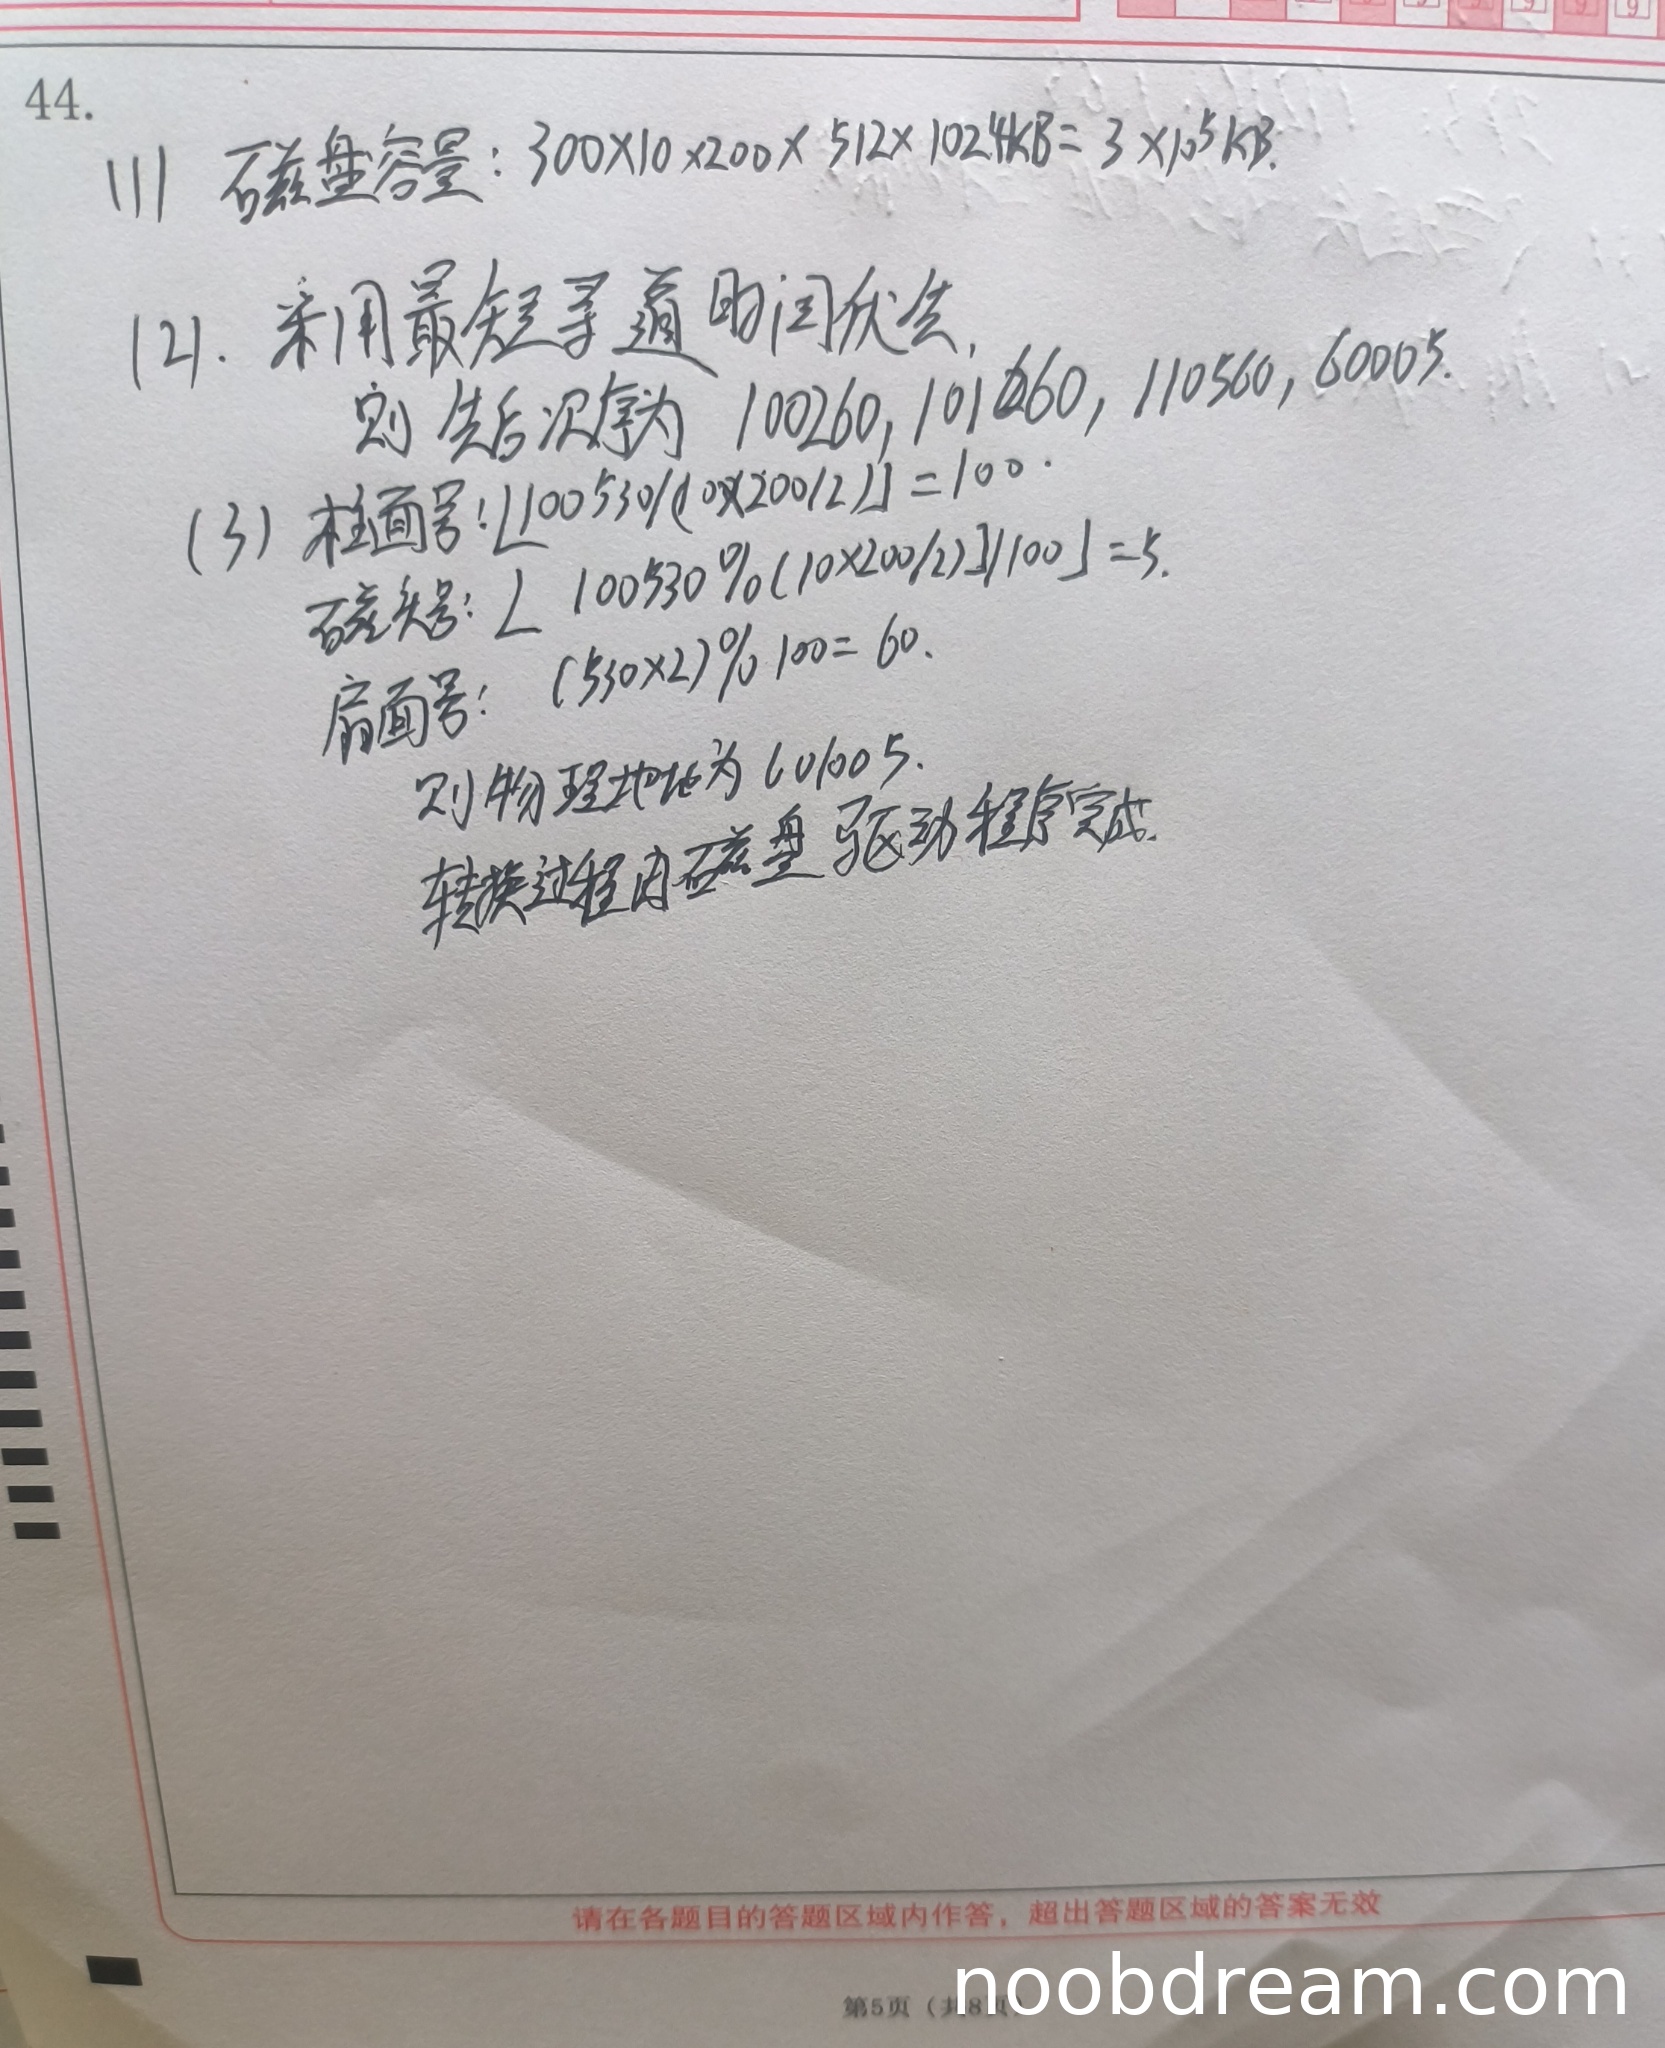 44.
(1) 磁盘容量：300×10×200×512×1024KB=3×10⁵KB.
(2). 采用最短寻道时间优先，
则先后次序为 100260, 101660, 110560, 60005.
(3) 柱面号：⌊100530/(10×200/2)⌋=100.
磁头号：⌊ 100530%(10×200/2)]/100⌋=5.
扇面号： (530×2)%100=60.
则物理地址为
转换过程由磁盘驱动程序完成.
请在各题目的答题区域内作答，超出答题区域的答案无效
第5页（共8页）
noobdream.com